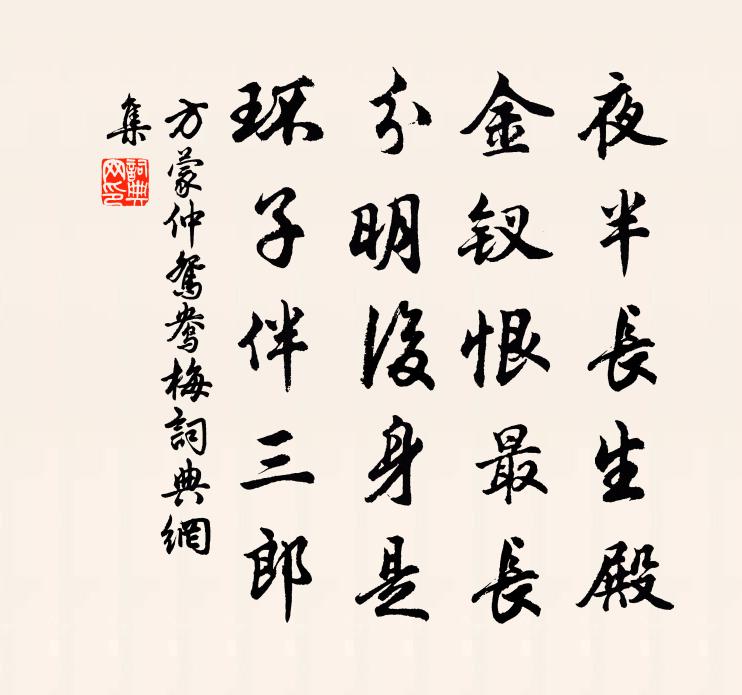 夜半長生殿
金釵恨最長
分明後身是
环子伴三郎
方蒙仲鴛鴦梅詞典網
集
詞典网印